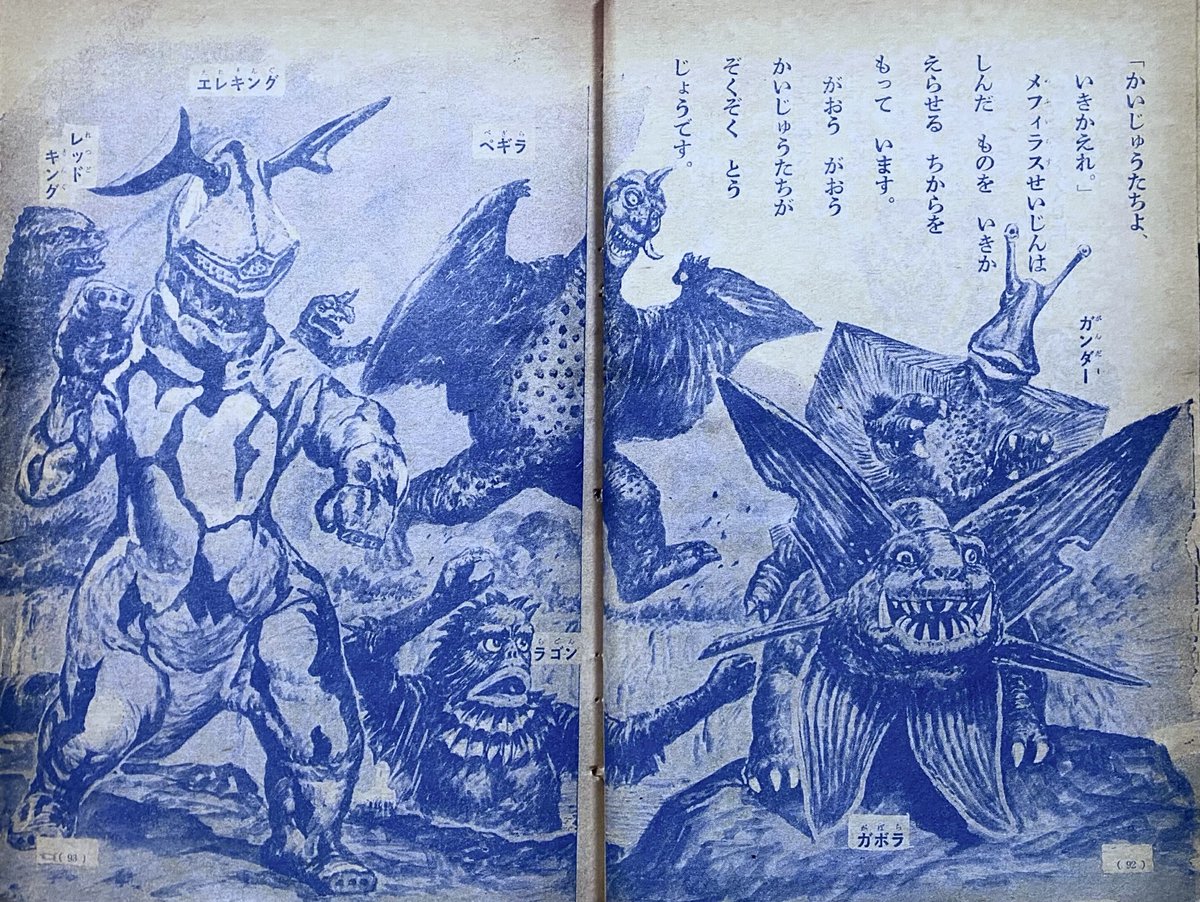 「かいじゅうたちよ、
いきかえれ。」
メフィラスせいじんは
しんだ ものを いきか
えらせる ちからを
もって います。
がおう がおう
かいじゅうたちが
ぞくぞく とう
じょうです。
ガンダー
がんだー
ガボラ
がぼら
(92)
ペギラ
ぺぎら
ラゴン
エレキング
えれきんぐ
レッド
れっど
キング
きんぐ
(93)